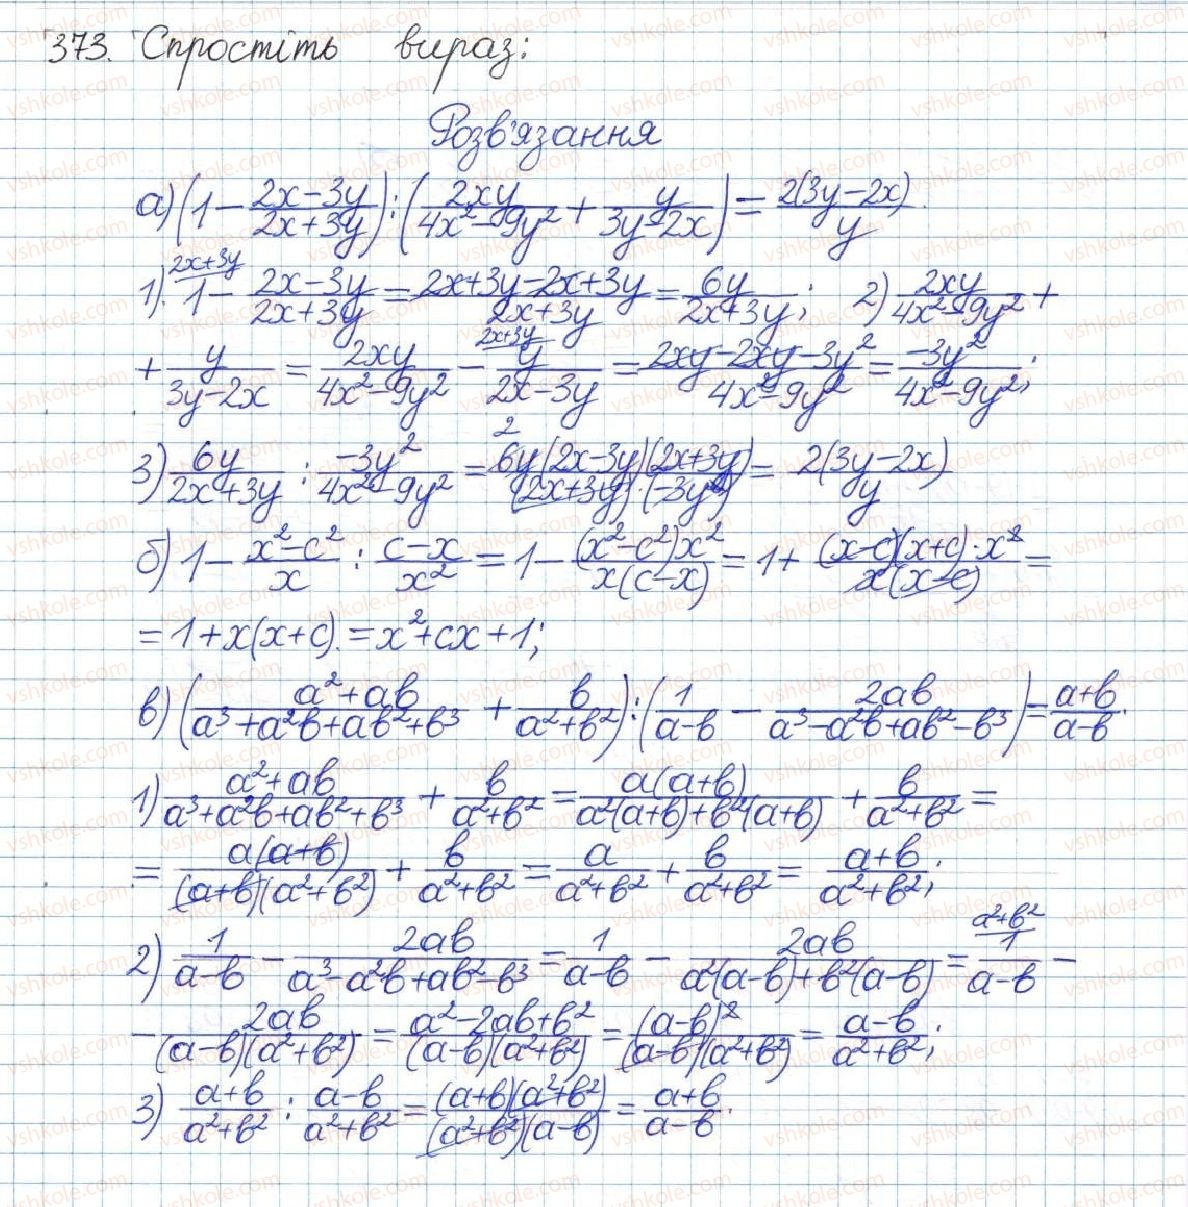 373. Спростіть вираз:
Розв'язання
а) (1 - (2x-3y)/(2x+3y)) : (2xy/(4x²-9y²) + y/(3y-2x)) = 2(3y-2x)/y.
1). 1 (2x+3y) - (2x-3y)/(2x+3y) = (2x+3y-2x+3y)/(2x+3y) = 6y/(2x+3y); 2) 2xy/(4x²-9y²) +
+ y/(3y-2x) = 2xy/(4x²-9y²) - y (2x+3y)/(2x-3y) = (2xy-2xy-3y²)/(4x²-9y²) = -3y²/(4x²-9y²);
3) 6y/(2x+3y) : -3y²/(4x²-9y²) = 6y(2x-3y)(2x+3y)/((2x+3y)·(-3y²)) = 2(3y-2x)/y
б) 1 - (x²-c²)/x : (c-x)/x² = 1 - (x²-c²)x²/(x(c-x)) = 1 + (x-c)(x+c)·x²/(x(x-c)) =
= 1+x(x+c). = x²+cx+1;
в) ((a²+ab)/(a³+a²b+ab²+b³) + b/(a²+b²)) : (1/(a-b) - 2ab/(a³-a²b+ab²-b³)) = (a+b)/(a-b).
1) (a²+ab)/(a³+a²b+ab²+b³) + b/(a²+b²) = a(a+b)/(a²(a+b)+b²(a+b)) + b/(a²+b²) =
= a(a+b)/((a+b)(a²+b²)) + b/(a²+b²) = a/(a²+b²) + b/(a²+b²) = (a+b)/(a²+b²);
2) 1/(a-b) - 2ab/(a³-a²b+ab²-b³) = 1/(a-b) - 2ab/(a²(a-b)+b²(a-b)) = 1 (a²+b²)/(a-b) -
- 2ab/((a-b)(a²+b²)) = (a²-2ab+b²)/((a-b)(a²+b²)) = (a-b)²/((a-b)(a²+b²)) = (a-b)/(a²+b²);
3) (a+b)/(a²+b²) : (a-b)/(a²+b²) = (a+b)(a²+b²)/((a²+b²)(a-b)) = (a+b)/(a-b).